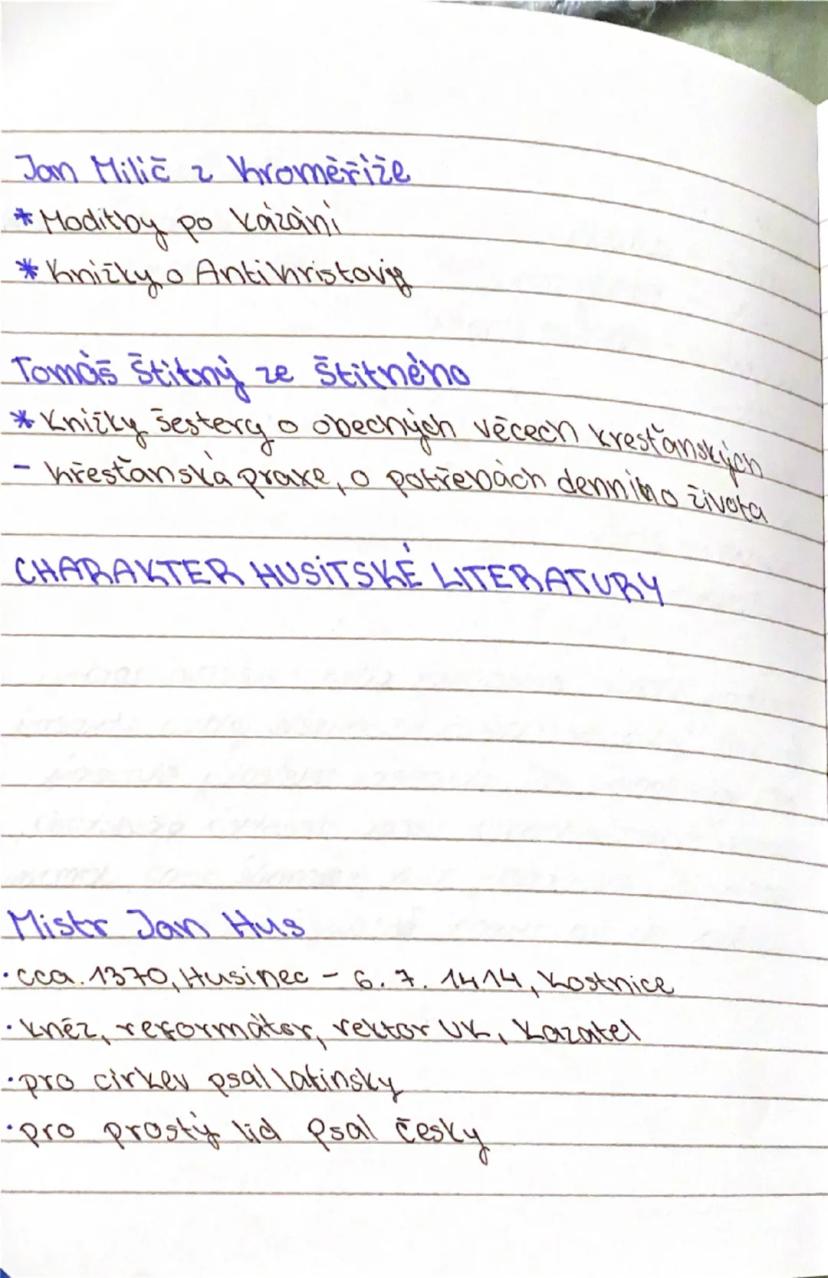 Jan Milič z Kroměříže
* Moditby po kázání
* knížky o Antikristovi
Tomáš Štítný ze Štítného
* Knížky šestery o obecných věcech křesťanských
- křesťanská praxe, o potřebách denního života
CHARAKTER HUSITSKÉ LITERATURY
Mistr Jan Hus
• cca. 1370, Husinec - 6. 7. 1414, Kostnice
• kněz, reformátor, rektor UK, kazatel
• pro církev psal latinsky
• pro prostý lid psal česky